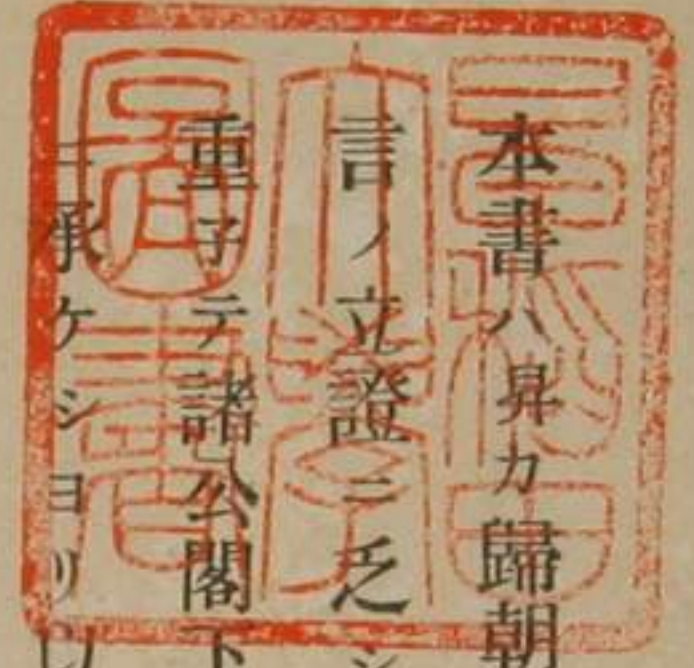 本書ハ昇カ歸朝
言ノ立證ニ乏シ
重子テ諸公閣下
ニ承ケシヨリ